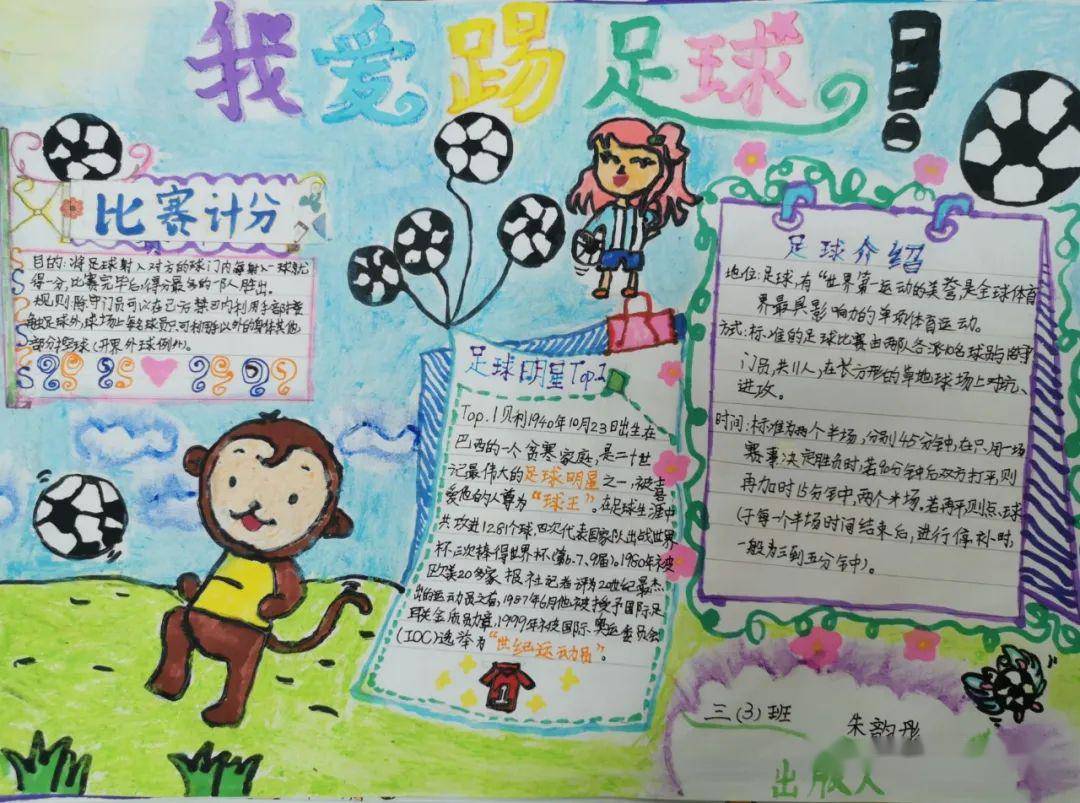 我爱踢足球!
比赛计分
目的:将足球射入对方的球门内每射入一球就
得一分,比赛完毕后,得分最多的一队胜出。
规则:除守门员可以在己方禁区内利用手部接
触足球外,球场上每名球员只可利用手以外的身体其他
部分控球(开界外球例外)。
足球明星Top.1
Top.1贝利1940年10月23日出生在
巴西的一个贫寒家庭,是二十世
纪最伟大的足球明星之一,被喜
爱他的人尊为“球王”。在足球生涯中
共攻进1281个球,四次代表国家队出战世界
杯,三次捧得世界杯(第6.7.9届)。1980年被
欧美20多家报社记者评为20世纪最杰
出的运动员之首,1987年6月他被授予国际足
联金质勋章,1999年被国际奥运委员会
(IOC)选举为“世纪运动员”。
1
足球介绍
地位:足球,有“世界第一运动的美誉,是全球体育
界最具影响力的单项体育运动。
方式:标准的足球比赛由两队各派10名球员与1名守
门员,共11人,在长方形的草地球场上对抗、
进攻。
时间:标准为两个半场,分别45分钟中,在只用一场
赛事决定胜负时,若90分钟后双方打平则
再加时15分钟中,两个半场。若再平则点球
(于每一个半场时间结束后,进行停补时,
一般为三到五分钟)。
三(3)班
朱韵彤
出版人